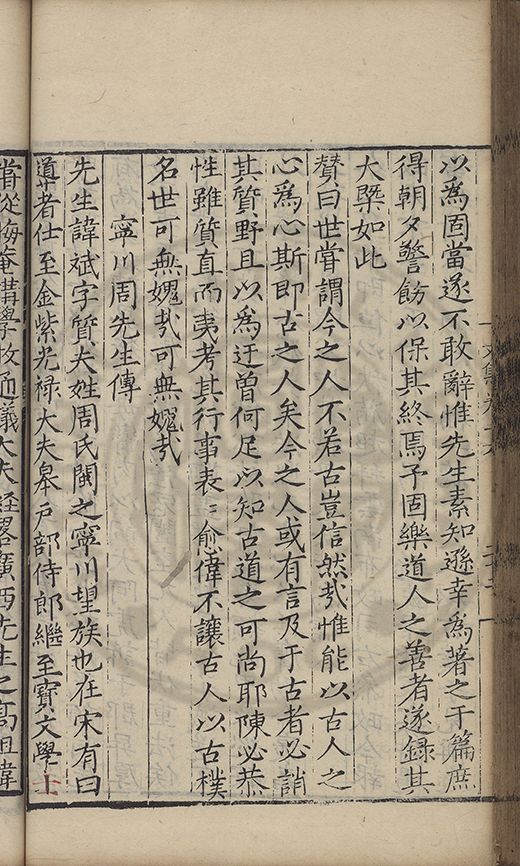 以為固當遂不敢辭惟先生素知遜幸為著之于篇庶
得朝夕警飭以保其終焉予固樂道人之善者遂錄其
大槩如此
贊曰世嘗謂今之人不若古豈信然㢤惟能以古人之
心為心斯即古之人矣今之人或有言及于古者必誚
其質野且以為迂曾何足以知古道之可尚耶陳必恭
性雖質直而夷考其行事表〻愈偉不讓古人以古樸
名世可無媿㢤可無媿㢤
寧川周先生傳
先生諱斌字質夫姓周氏閩之寧川望族也在宋有曰
導者仕至金紫光禄大夫皋戸部侍郎繼至寶文學士
嘗從晦菴講學牧通議大夫經畧廣西先生之高祖諱